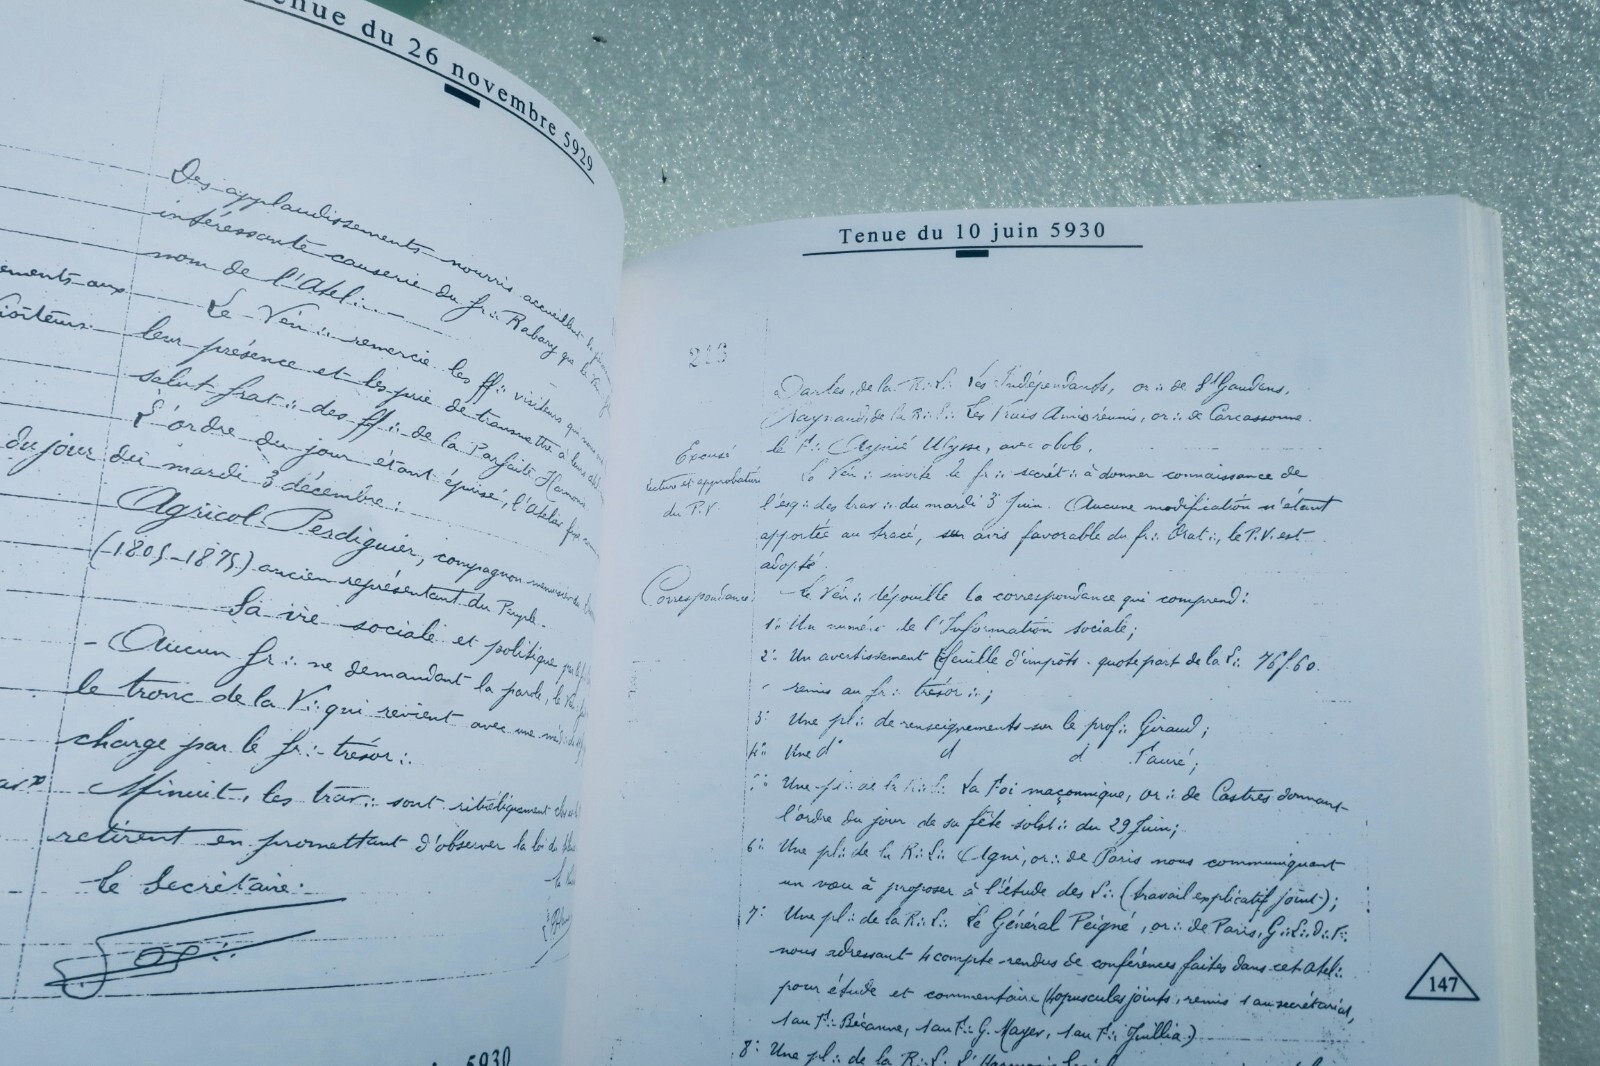 enue du 26 novembre 5929
Des applaudissements nourris accueillent la
intéressante causerie du fr∴ Rabary que le Vén
nom de l'Atel∴
ements aux
Le Vén∴ remercie les ff∴ visiteurs qui
leur présence et les prie de transmettre à leurs
salut frat∴ des ff∴ de la Parfaite Harmonie
L'ordre du jour étant épuisé, l'Atelier fixe
du jour du mardi 3 décembre :
Agricol Perdiguier, compagnon menuisier
(1805-1875) ancien représentant du Peuple.
Sa vie sociale et politique
- Aucun fr∴ ne demandant la parole, le Vén
le tronc de la V∴ qui revient avec une
charge par le fr∴ trésor∴
Minuit, les trav∴ sont rituéliquement
retirent en promettant d'observer la loi du
le Secrétaire.
5930
Tenue du 10 juin 5930
213
Dantes, de la R∴L∴ les Indépendants, or∴ de St Gaudens.
Raynaud, de la R∴L∴ Les Vrais Amis réunis, or∴ de Carcassonne.
Excusé
le F∴ Ulysse, avec obob.
lecture et approbation
du P.V.
Le Vén∴ invite le fr∴ secrét∴ à donner connaissance de
l'esq∴ des trav∴ du mardi 3 Juin. Aucune modification n'étant
apportée au tracé, sur avis favorable du fr∴ Orat∴, le P.V. est
adopté.
Correspondance.
- Le Vén∴ dépouille la correspondance qui comprend :
1° Un numéro de l'Information sociale;
2° Un avertissement feuille d'impôts - quote part de la L∴ 76f.60.
remis au fr∴ trésor∴;
3° Une pl∴ de renseignements sur le prof∴ Giraud;
4° Une d° d d Fauré;
Une pl∴ de la R∴L∴ La Foi maçonnique, or∴ de Castres donnant
l'ordre du jour de sa fête solst∴ du 29 Juin;
6° Une pl∴ de la R∴L∴ Agni, or∴ de Paris nous communiquant
un vœu à proposer à l'étude des L∴ (travail explicatif joint);
7° Une pl∴ de la R∴L∴ Le Général Peigné, or∴ de Paris, G∴L∴D∴F∴
nous adressant 4 compte rendus de conférences faites dans cet Atel∴
pour étude et commentaire (4 opuscules joints, remis 1 au secrétariat,
1 au F∴ Bécanne, 1 au F∴ G. Mayer, 1 au F∴ Juillia)
8° Une pl∴ de la R∴L∴
147